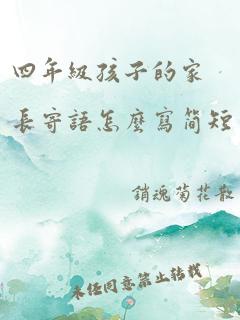 四年級孩子的家
長寄語怎麼寫简短
銷魂菊花散
未经同意禁止转载